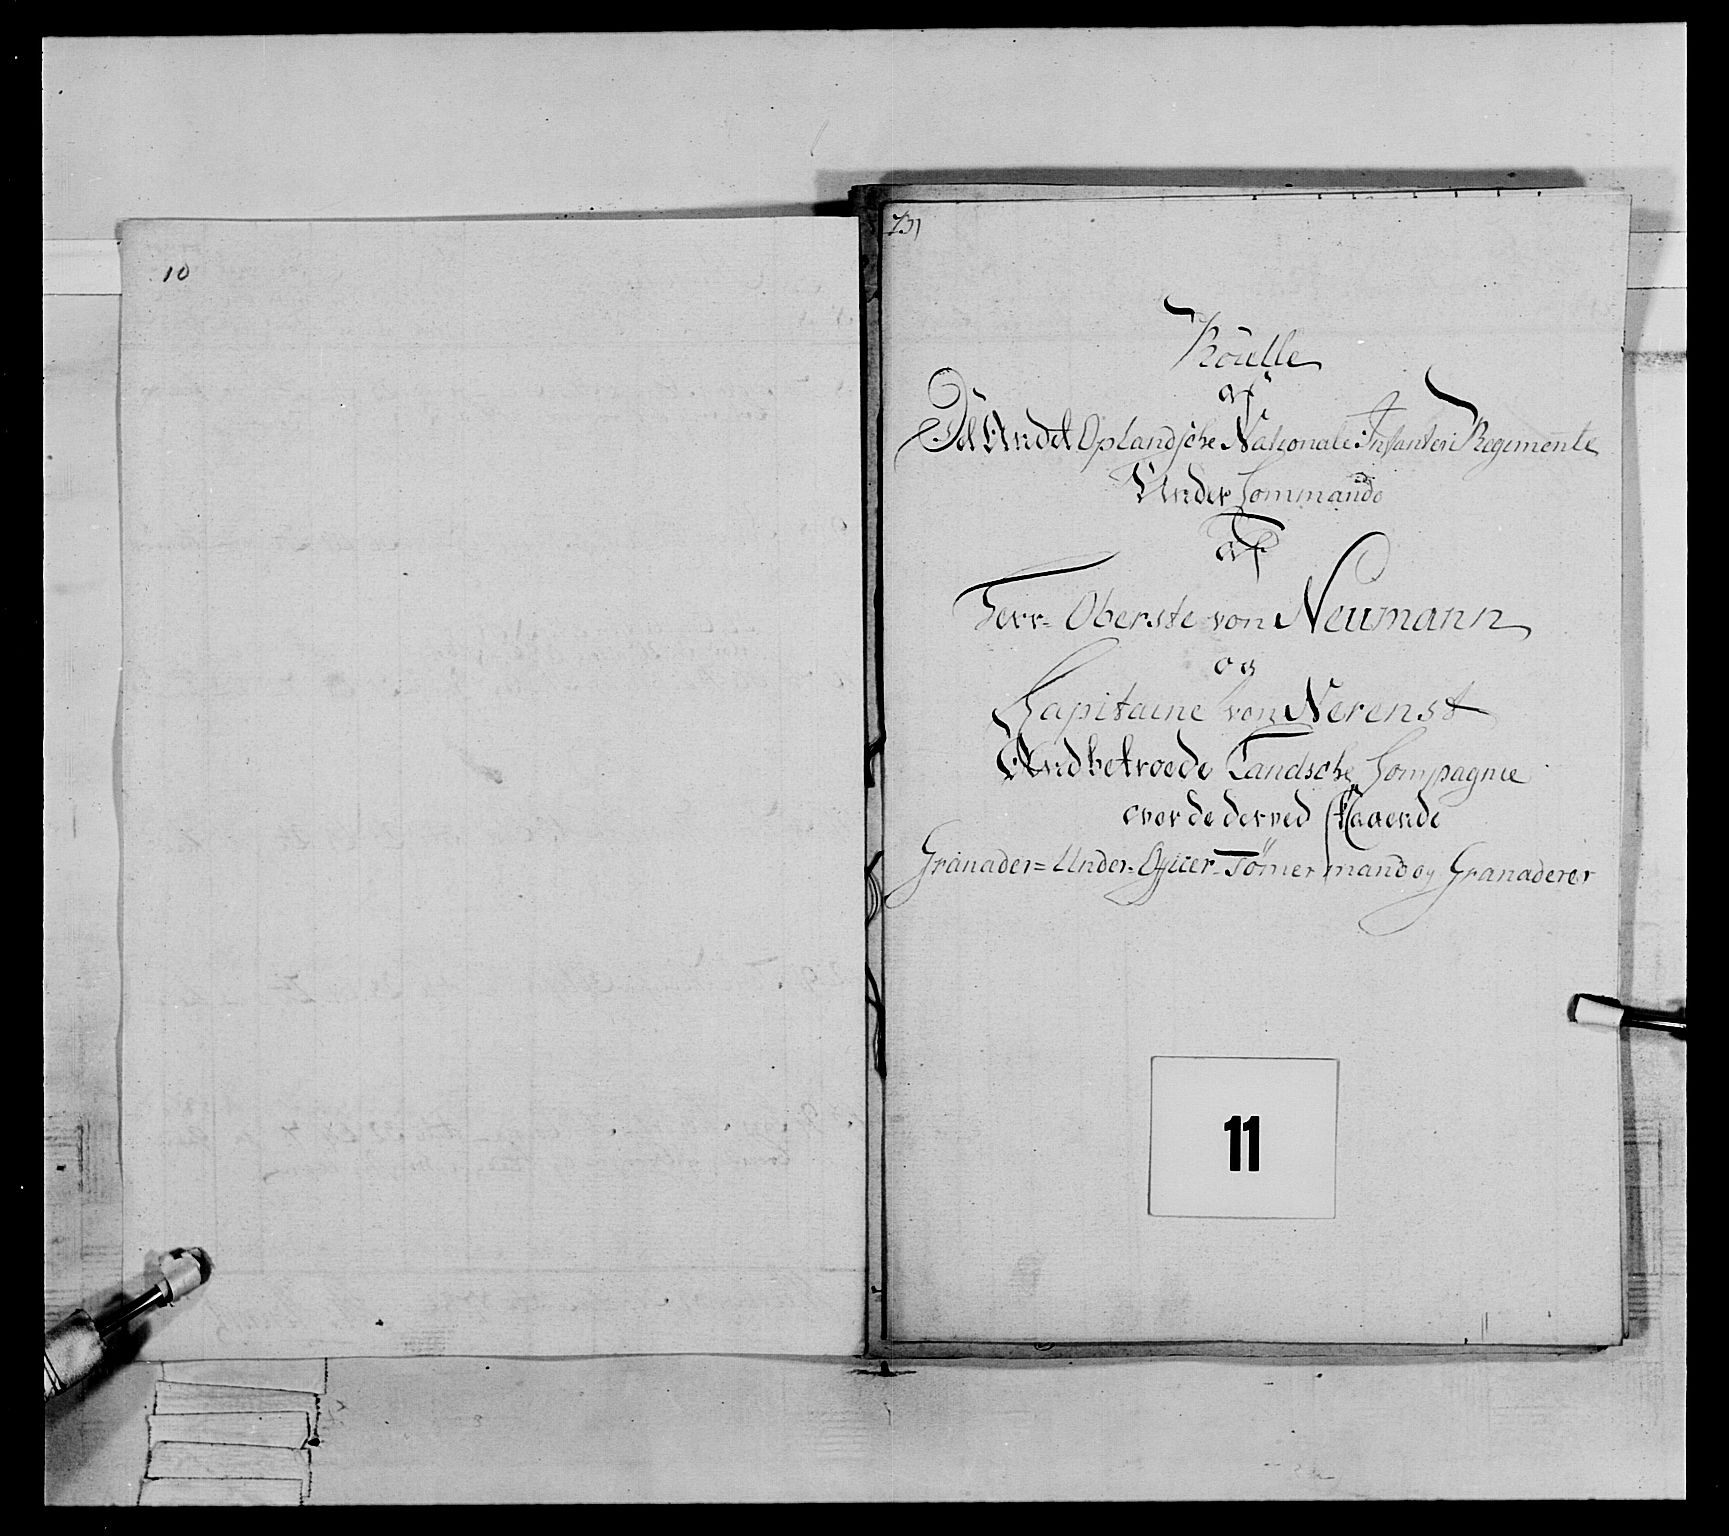 10
731
Roulle
af
Det Andet Oplandsche Nationale Infanteri Regimente
Under Commando
af
Herr Oberste von Neumann
og
Kapitaine von Nerenst
Andbetroede Landsche Compagnie
over de derved staaende
Granader= Under-Officer-Tömermand og Granaderer
11